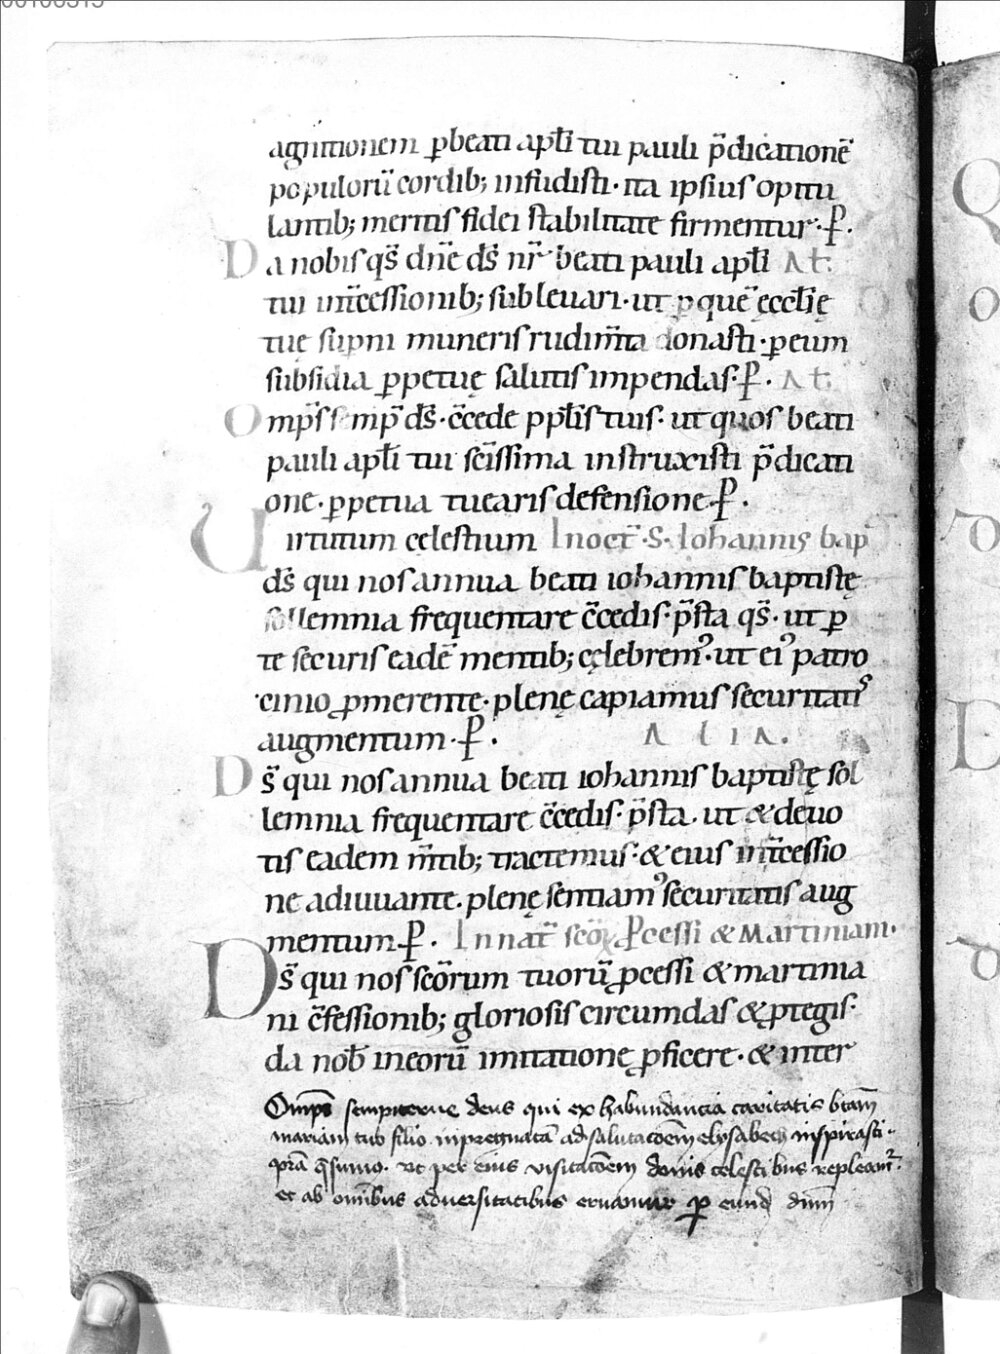 agnitionem ꝑ beati apłi tui pauli p̃dicationẽ
populorũ cordib; infudisti· ita ipsius opitu
lantib; meritis fidei stabilitate firmentur·ꝑ·
Da nobis qs̃ dñe ds̃ nr̃ beati pauli apłi At̃
tui int̃cessionib; subleuari· ut ꝑ quẽ ęcclię
tuę supni muneris rudim̃ta donasti· ꝑ eum
subsidia ꝑpetuę salutis impendas·ꝑ· At̃
Omp̃s semp̃ ds̃· c̃cede pplis tuis· ut quos beati
pauli apłi tui sc̃issima instruxisti p̃dicati
one· ꝑpetua tuearis defensione·ꝑ·
Uirtutum celestium In oct̃·S·Iohannis bap
ds̃ qui nos annua beati iohannis baptistę
sollemnia frequentare c̃cedis· p̃sta qs̃· ut ꝑ
te securis eadẽ mentib; cęlebrem᾽· ut ei᾽ patro
cinio ꝓmerente· plenę capiamus securitatis
augmentum·ꝑ· ALIA·
Ds̃ qui nos annua beati iohannis baptistę sol
lemnia frequentare c̃cedis· p̃sta· ut & deuo
tis eadem m̃tib; tractemus· & eius int̃cessio
ne adiuuante· plenę sentiam᾽ securitatis aug
mentum ꝑ· In nat̃ scõꝝ ꝓcessi & Martiniani·
Ds̃ qui nos scõrum tuorũ ꝓcessi & martinia
ni c̃fessionib; gloriosis circumdas & ꝓtegis·
da nob̃ in eorũ imitatione ꝓficere· & inter
Omp̃s sempiterne deus qui ex habundancia caritatis btam̃
mariam tuo filio inpregnatã ad salutacõem elysabeth inspirasti·
p̃ra q̃sumus· ut per eius visitacõem donis celestibus repleamr̃·
et ab om̃ibus adversitatibus eruamur ꝑ eund dnm̃